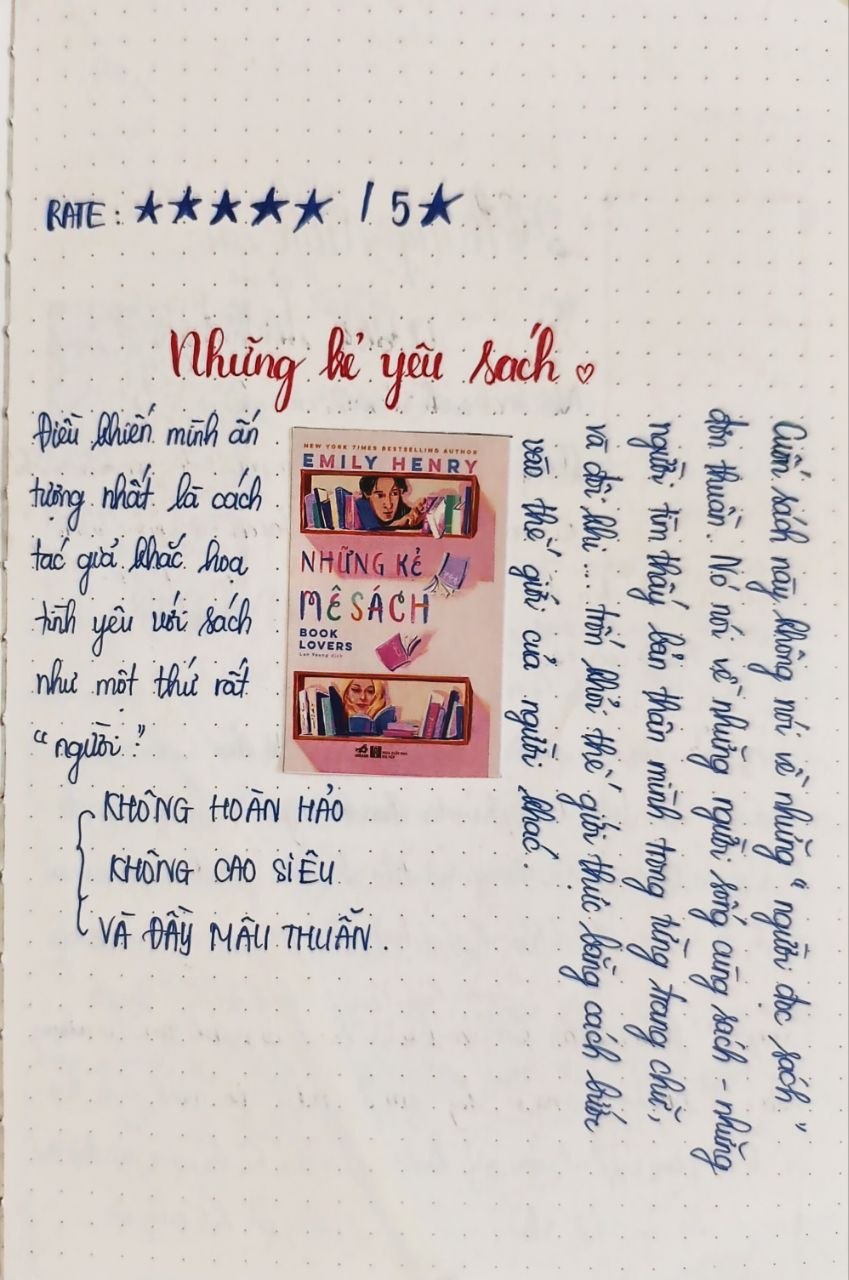 RATE: ★★★★★ / 5★
Những kẻ yêu sách ♡
Điều khiến mình ấn
tượng nhất là cách
tác giả khắc hoạ
tình yêu với sách
như một thứ rất
"người".
KHÔNG HOÀN HẢO
KHÔNG CAO SIÊU
VÀ ĐẦY MÂU THUẪN.
NEW YORK TIMES BESTSELLING AUTHOR
EMILY HENRY
NHỮNG KẺ
MÊ SÁCH
BOOK
LOVERS
Lan Young dịch
Cuốn sách này không nói về những "người đọc sách"
đơn thuần. Nó nói về những người sống cùng sách - những
người tìm thấy bản thân mình trong từng trang chữ,
và đôi khi... trốn khỏi thế giới thực bằng cách bước
vào thế giới của người khác.